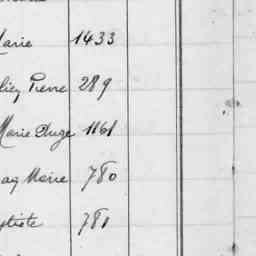 Marie 1433
Pierre 289
Marie Ange 1161
Marie 780
ptiste 781